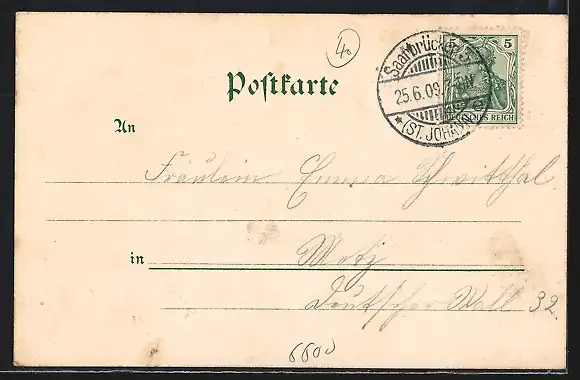 40
Postkarte
5 5
DEUTSCHES REICH
Saarbrücken 3
25.6.09.
* (ST. JOHANN) e
An
Fräulein Emma Schwitthal
in Metz
Deutscher Wall 32.
6600